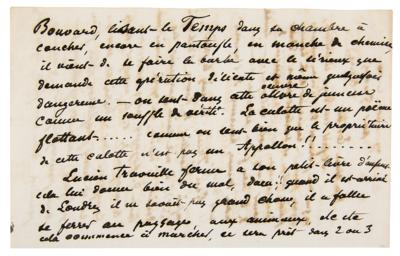 Bouvard, lisant le Temps dans sa chambre à
coucher, encore en pantoufle, en manche de chemise
il vient de se faire la barbe avec le sérieux que
demande cette opération délicate et même quelquefois
dangereuse. — on sent dans cette œuvre de
comme un souffle de vérité. La culotte est un poëme
flottant..... comme on sent bien que le propriétaire
de cette culotte n'est pas un Appollon!!........
Lucien Travouille forme a son petit
cela lui donne bien du mal, dam! quand il est arrivé
de Londres il ne savait pas grand chose, il a fallu
se ferrer au paysage, aux animaux,
cela commence à marcher, ce sera prêt dans 2 ou 3